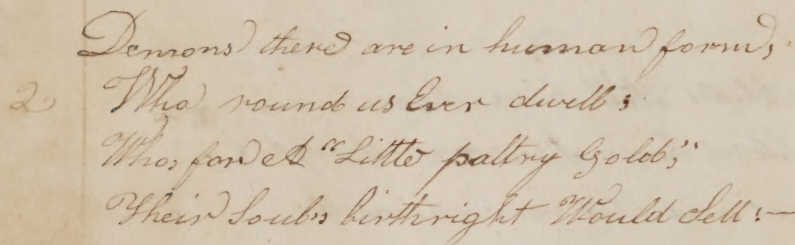 Demons there are in human form,
2 Who round us Ever dwell;
Who, for A "Little paltry Gold";
Their Soul's birthright Would Sell:—